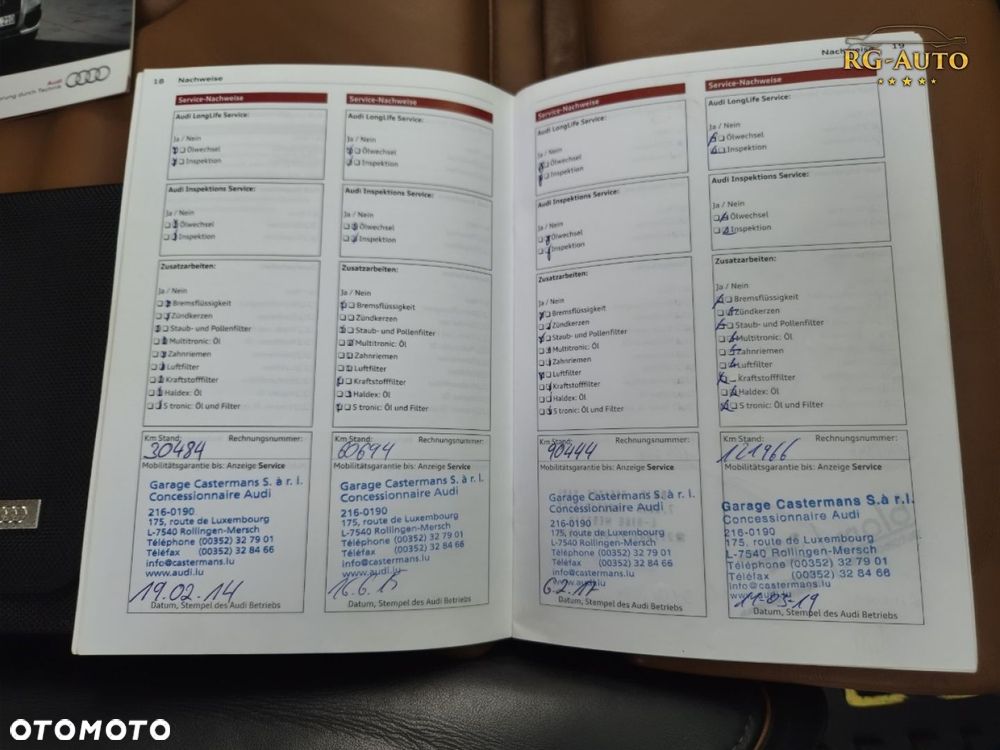 Audi
18 Nachweise
Service-Nachweise
Audi LongLife Service:
Ja / Nein
Ölwechsel
Inspektion
Audi Inspektions Service:
Ja / Nein
Ölwechsel
Inspektion
Zusatzarbeiten:
Ja / Nein
Bremsflüssigkeit
Zündkerzen
Staub- und Pollenfilter
Multitronic: Öl
Zahnriemen
Luftfilter
Kraftstofffilter
Haldex: Öl
S tronic: Öl und Filter
Km Stand: Rechnungsnummer:
30484
Mobilitätsgarantie bis: Anzeige Service
Garage Castermans S. à r. l.
Concessionnaire Audi
216-0190
175, route de Luxembourg
L-7540 Rollingen-Mersch
Téléphone (00352) 32 79 01
Téléfax (00352) 32 84 66
info@castermans.lu
www.audi.lu
19.02.14
Datum, Stempel des Audi Betriebs
Service-Nachweise
Audi LongLife Service:
Ja / Nein
Ölwechsel
Inspektion
Audi Inspektions Service:
Ja / Nein
Ölwechsel
Inspektion
Zusatzarbeiten:
Ja / Nein
Bremsflüssigkeit
Zündkerzen
Staub- und Pollenfilter
Multitronic: Öl
Zahnriemen
Luftfilter
Kraftstofffilter
Haldex: Öl
S tronic: Öl und Filter
Km Stand: Rechnungsnummer:
60694
Mobilitätsgarantie bis: Anzeige Service
Garage Castermans S. à r. l.
Concessionnaire Audi
216-0190
175, route de Luxembourg
L-7540 Rollingen-Mersch
Téléphone (00352) 32 79 01
Téléfax (00352) 32 84 66
info@castermans.lu
www.audi.lu
16.6.15
Datum, Stempel des Audi Betriebs
Nachweise 19
Service-Nachweise
Audi LongLife Service:
Ja / Nein
Ölwechsel
Inspektion
Audi Inspektions Service:
Ja / Nein
Ölwechsel
Inspektion
Zusatzarbeiten:
Ja / Nein
Bremsflüssigkeit
Zündkerzen
Staub- und Pollenfilter
Multitronic: Öl
Zahnriemen
Luftfilter
Kraftstofffilter
Haldex: Öl
S tronic: Öl und Filter
Km Stand: Rechnungsnummer:
90444
Mobilitätsgarantie bis: Anzeige Service
Garage Castermans S. à r. l.
Concessionnaire Audi
216-0190
175, route de Luxembourg
L-7540 Rollingen-Mersch
Téléphone (00352) 32 79 01
Téléfax (00352) 32 84 66
info@castermans.lu
www.audi.lu
6.2.17
Datum, Stempel des Audi Betriebs
Service-Nachweise
Audi LongLife Service:
Ja / Nein
Ölwechsel
Inspektion
Audi Inspektions Service:
Ja / Nein
Ölwechsel
Inspektion
Zusatzarbeiten:
Ja / Nein
Bremsflüssigkeit
Zündkerzen
Staub- und Pollenfilter
Multitronic: Öl
Zahnriemen
Luftfilter
Kraftstofffilter
Haldex: Öl
S tronic: Öl und Filter
Km Stand: Rechnungsnummer:
121966
Mobilitätsgarantie bis: Anzeige Service
Garage Castermans S.à r.l.
Concessionnaire Audi
216-0190
175, route de Luxembourg
L-7540 Rollingen-Mersch
Téléphone (00352) 32 79 01
Téléfax (00352) 32 84 66
info@castermans.lu
www.audi.lu
11-03-19
Datum, Stempel des Audi Betriebs
RG-AUTO
OTOMOTO